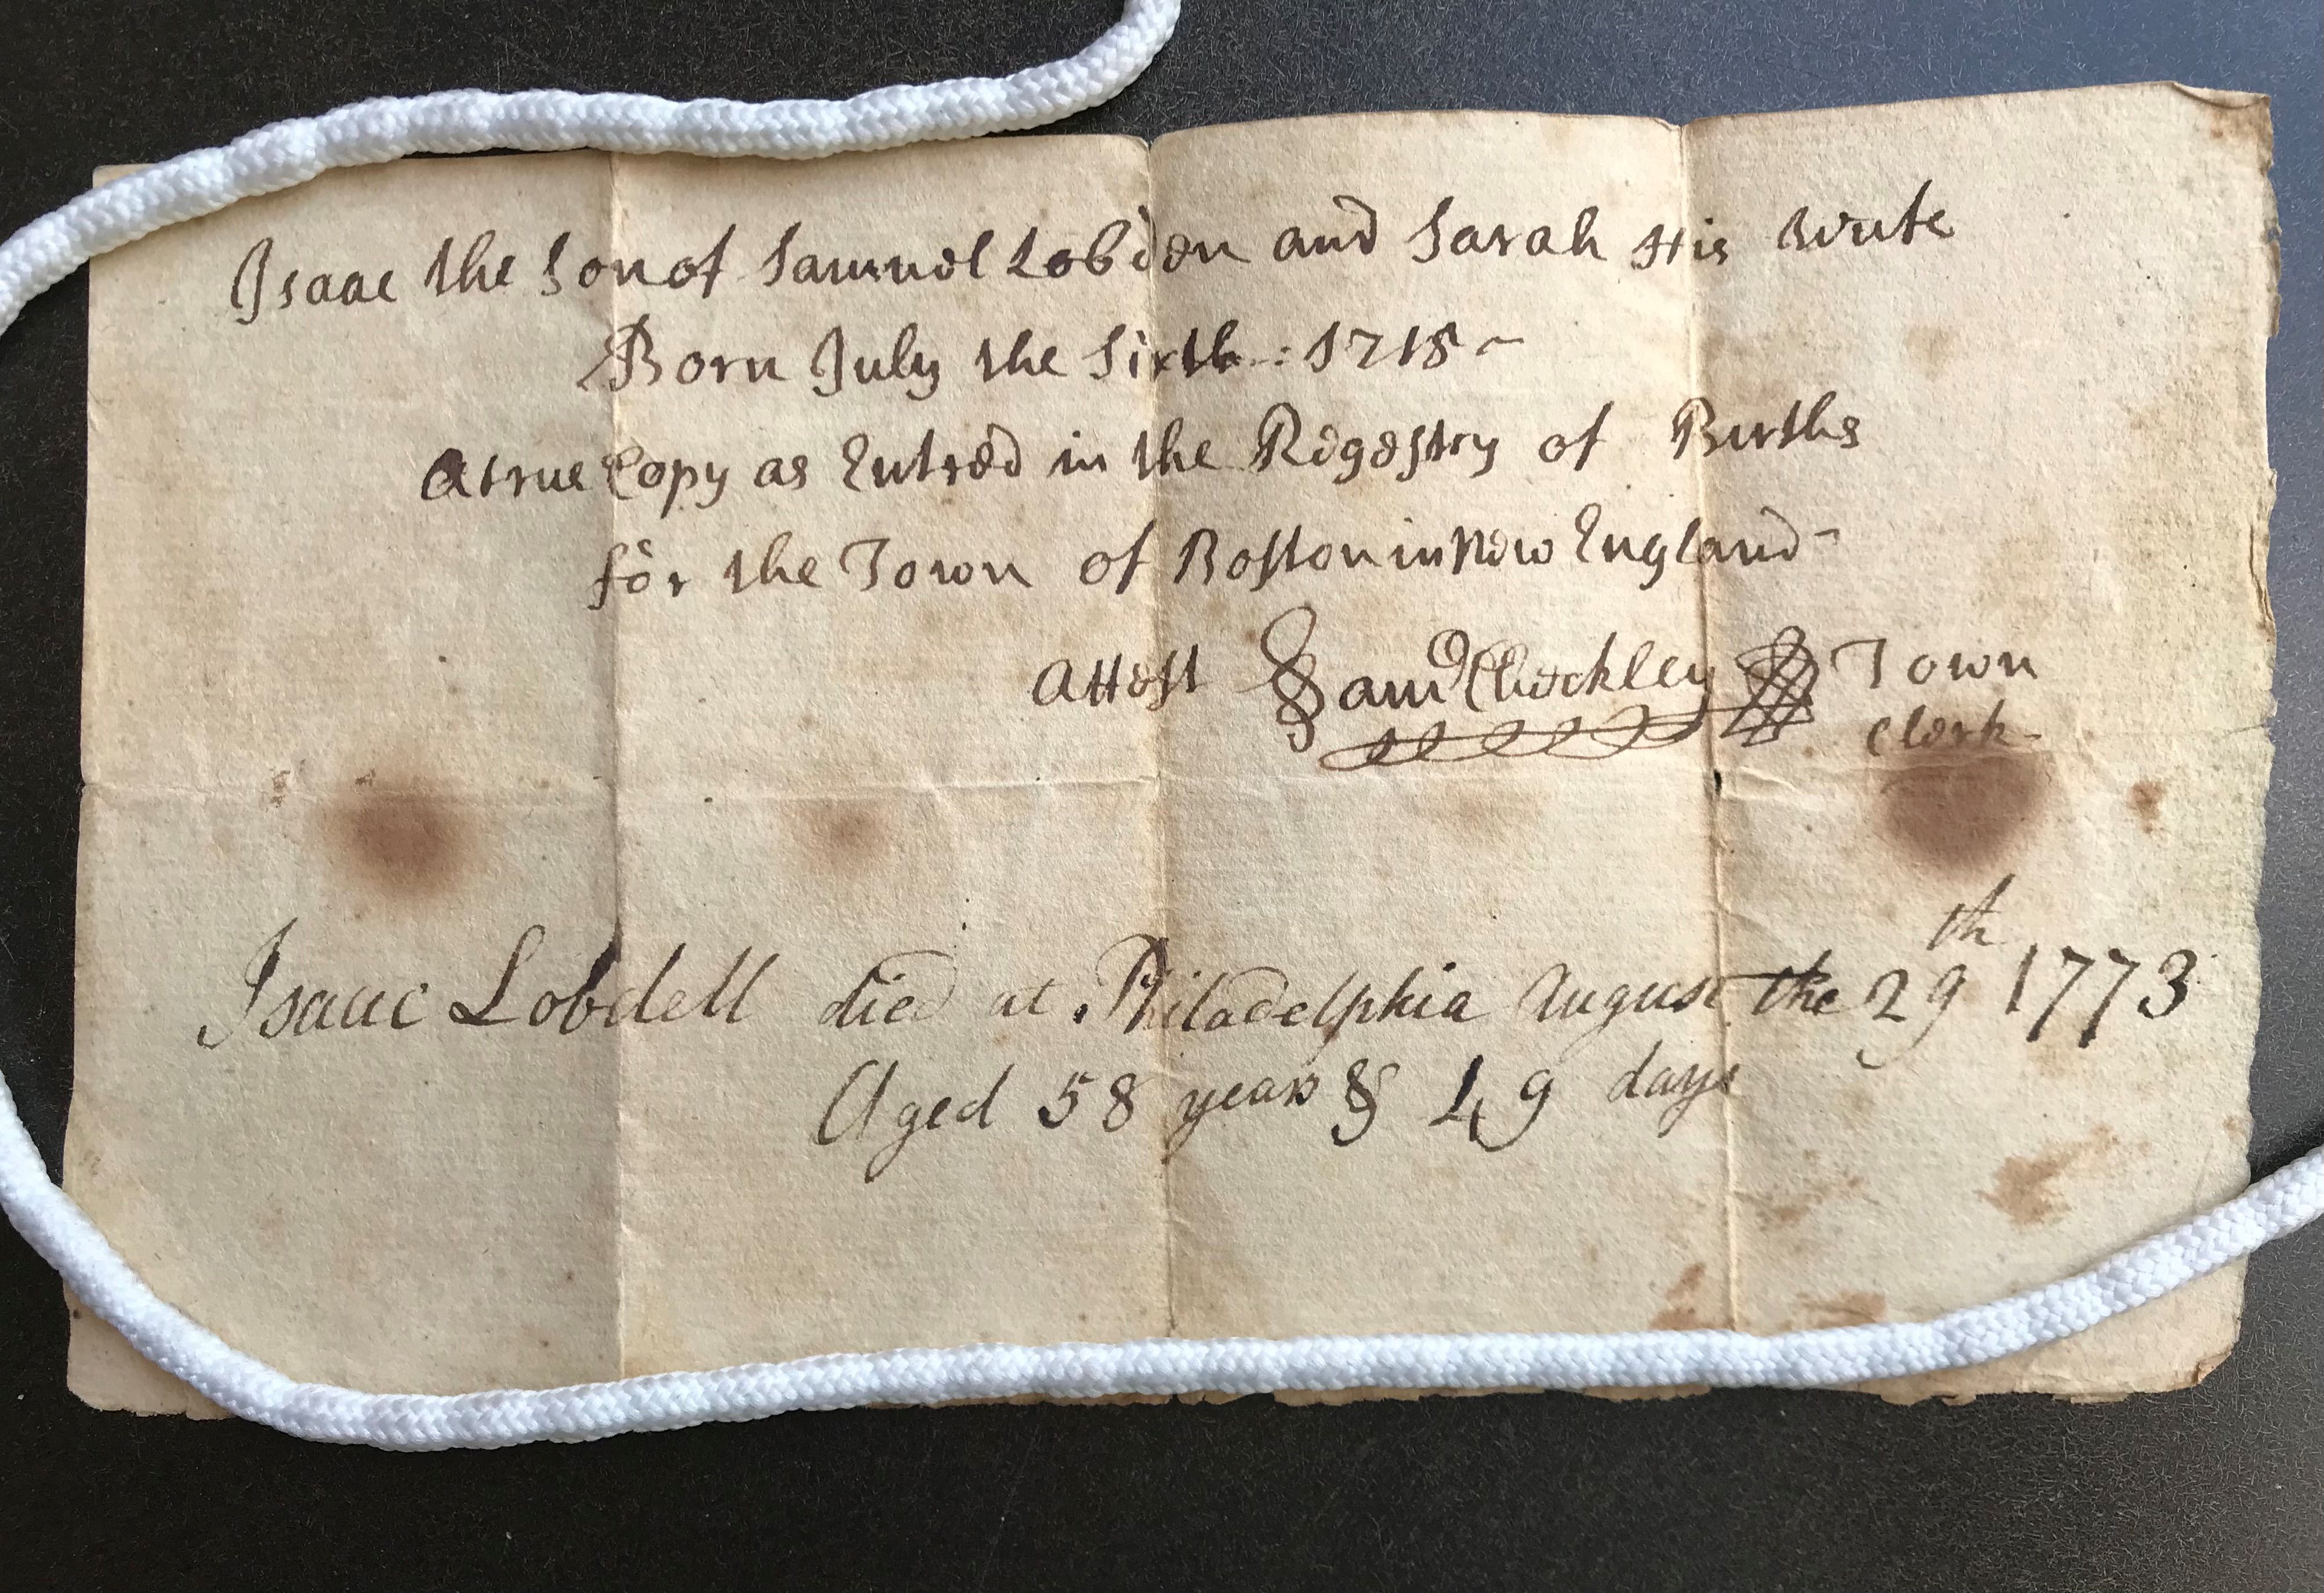 Isaac the Son of Samuel Lobden and Sarah His Wife
Born July the Sixth : 1715 ~
A true Copy as Entred in the Regestry of Births
for the Town of Boston in New England -
Attest Saml Checkley Town
Clerk -
Isaac Lobdell died at Philadelphia August the 29th 1773
Aged 58 years & 49 days